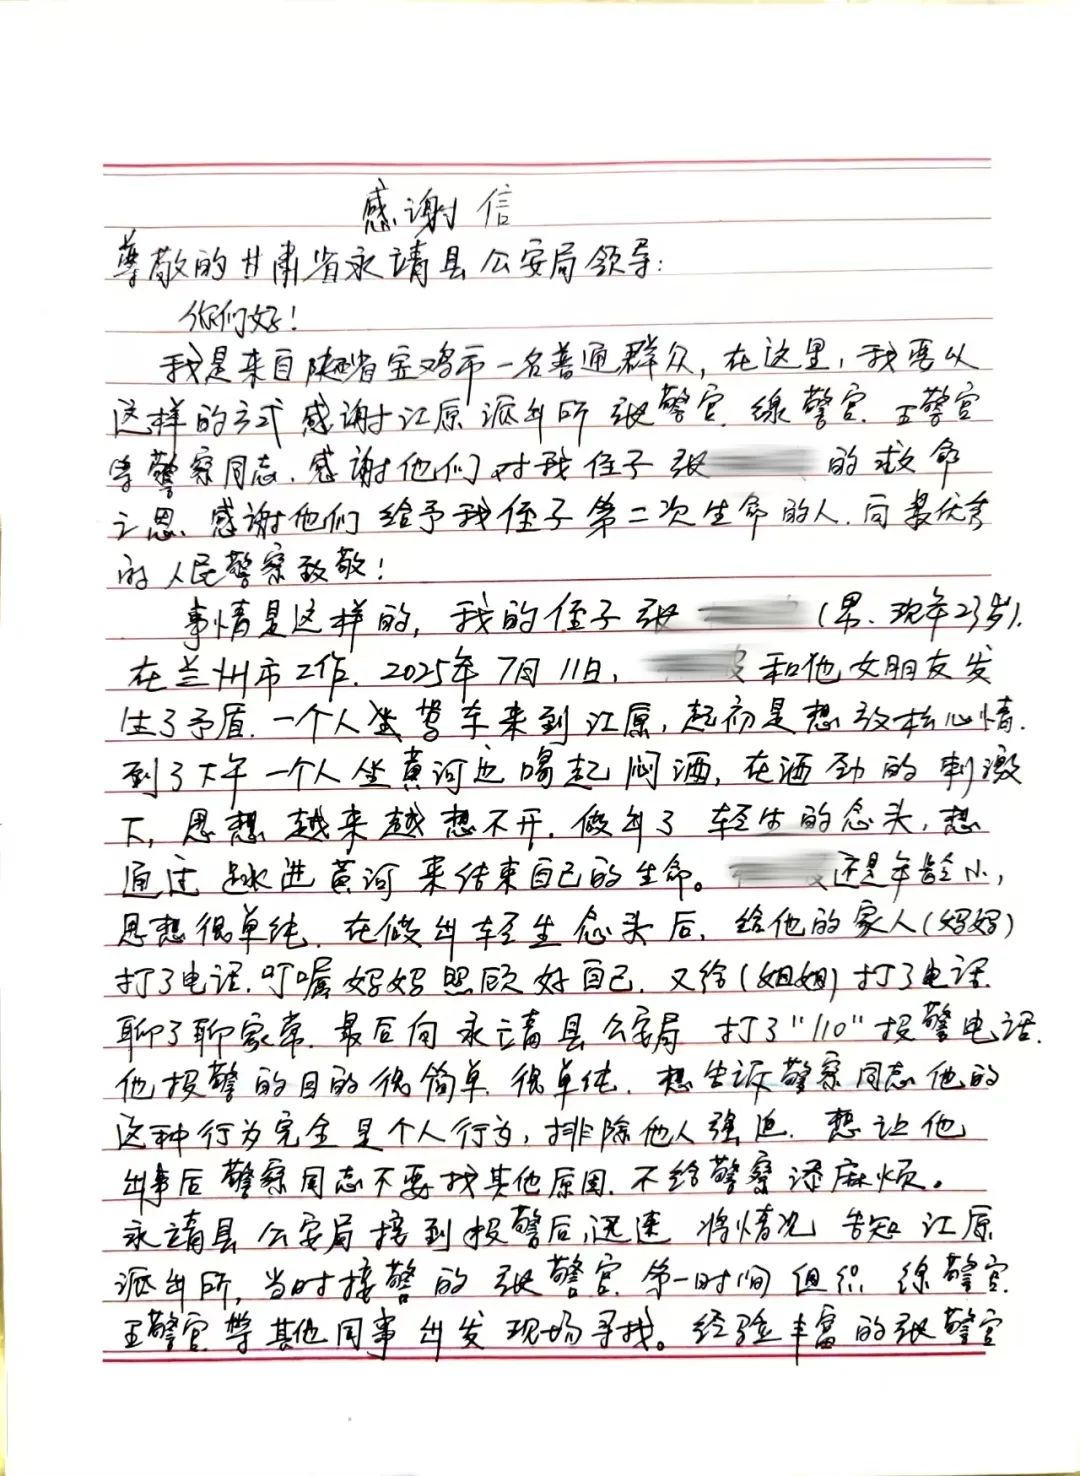 感谢信
尊敬的甘肃省永靖县公安局领导:
你们好!
我是来自陕西省宝鸡市一名普通群众,在这里,我要以
这样的方式感谢江原派出所张警官.缐警官.王警官
等警察同志.感谢他们对我侄子张 的救命
之恩.感谢他们给予我侄子第二次生命的人.向最优秀
的人民警察致敬!
事情是这样的,我的侄子张 (男、现年23岁).
在兰州市工作.2025年7月11日, 和他女朋友发
生了矛盾.一个人坐驾车来到江原,起初是想放松心情.
到了下午一个人坐黄河边喝起闷酒,在酒劲的刺激
下,思想越来越想不开.做出了轻生的念头,想
通过跳进黄河来结束自己的生命。 还是年龄小,
思想很单纯.在做出轻生念头后,给他的家人(妈妈)
打了电话.叮嘱妈妈照顾好自己.又给(姐姐)打了电话.
聊了聊家常.最后向永靖县公安局打了"110"报警电话.
他报警的目的很简单.很单纯.想告诉警察同志他的
这种行为完全是个人行为,排除他人强迫.想让他
出事后警察同志不要找其他原因.不给警察添麻烦。
永靖县公安局接到报警后,迅速将情况告知江原
派出所,当时接警的张警官.第一时间组织缐警官.
王警官等其他同事出发现场寻找。经验丰富的张警官